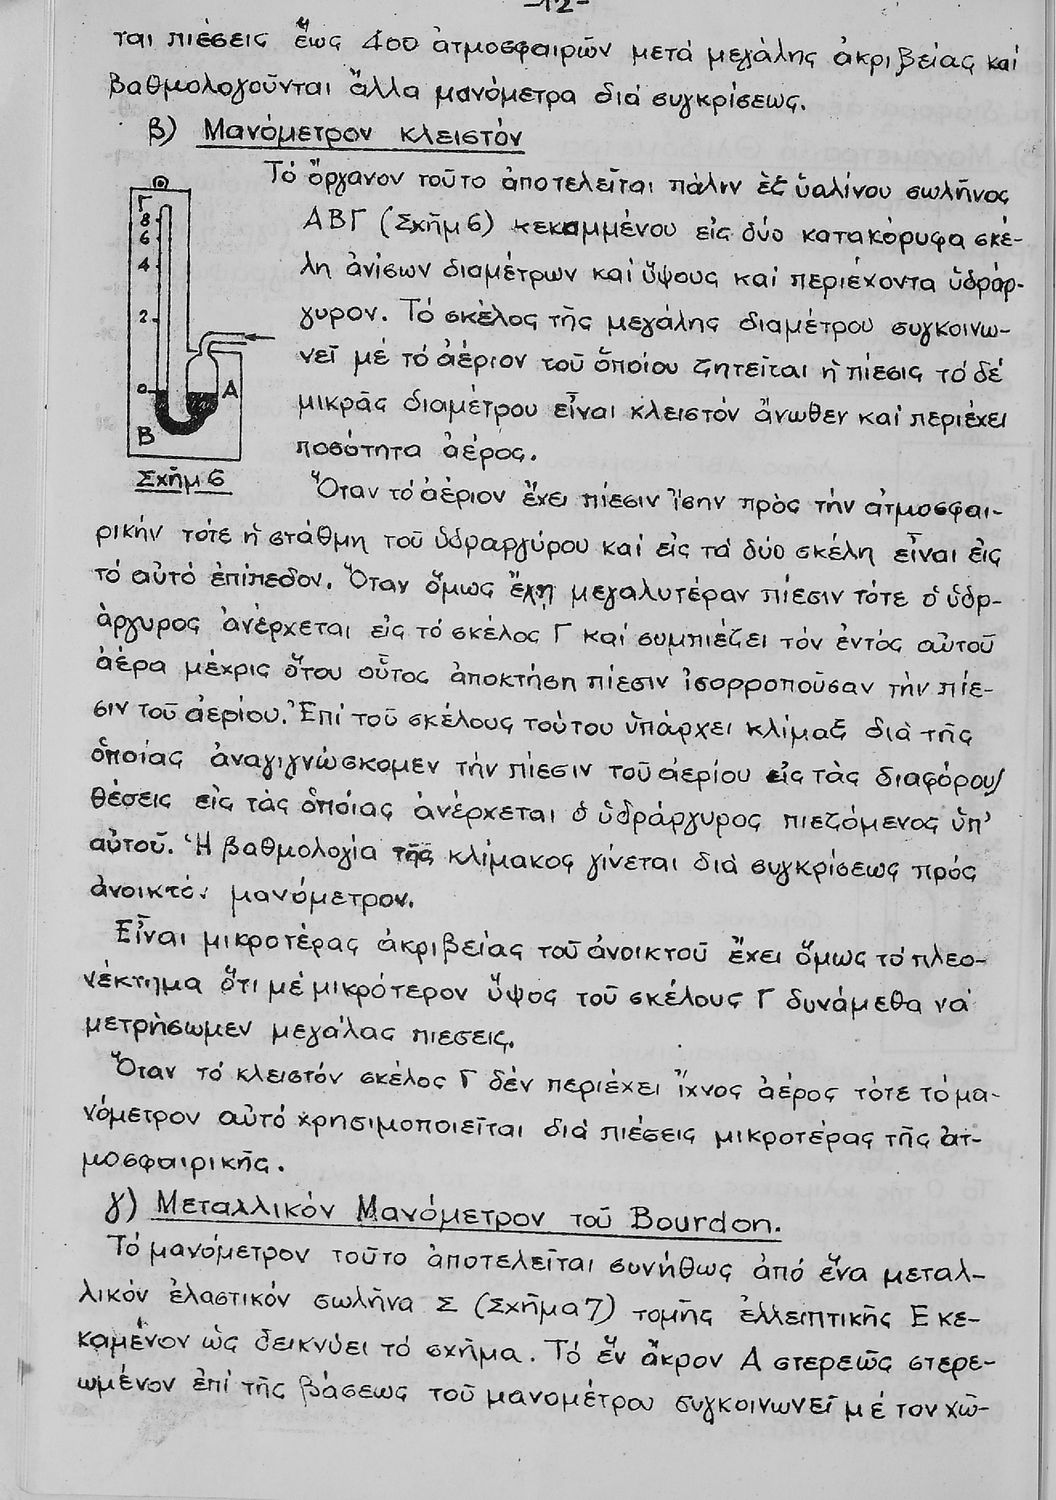 -12-
ται πιέσεις ἕως 400 ἀτμοσφαιρῶν μετά μεγάλης ἀκριβείας καί
βαθμολογοῦνται ἄλλα μανόμετρα διά συγκρίσεως.
β) Μανόμετρον κλειστόν
Τό ὄργανον τοῦτο ἀποτελεῖται πάλιν ἐξ ὑαλίνου σωλῆνος
ΑΒΓ (Σχῆμ 6) κεκαμμένου εἰς δύο κατακόρυφα σκέ-
λη ἀνίσων διαμέτρων καί ὕψους καί περιέχοντα ὑδράρ-
γυρον. Τό σκέλος τῆς μεγάλης διαμέτρου συγκοινω-
νεῖ μέ τό ἀέριον τοῦ ὁποίου ζητεῖται ἡ πίεσις τό δέ
μικρᾶς διαμέτρου εἶναι κλειστόν ἄνωθεν καί περιέχει
ποσότητα ἀέρος.
Γ
8
6
4
2
0
Α
Β
Σχῆμ 6
Ὅταν τό ἀέριον ἔχει πίεσιν ἴσην πρὸς τήν ἀτμοσφαι-
ρικήν τότε ἡ στάθμη τοῦ ὑδραργύρου καί εἰς τά δύο σκέλη εἶναι εἰς
τό αὐτό ἐπίπεδον. Ὅταν ὅμως ἔχῃ μεγαλυτέραν πίεσιν τότε ὁ ὑδρ-
άργυρος ἀνέρχεται εἰς τό σκέλος Γ καί συμπιέζει τόν ἐντός αὐτοῦ
ἀέρα μέχρις ὅτου οὗτος ἀποκτήση πίεσιν ἰσορροποῦσαν τήν πίε-
σιν τοῦ ἀερίου. Ἐπί τοῦ σκέλους τούτου ὑπάρχει κλίμαξ διά τῆς
ὁποίας ἀναγιγνώσκομεν τήν πίεσιν τοῦ ἀερίου εἰς τὰς διαφόρους
θέσεις εἰς τὰς ὁποίας ἀνέρχεται ὁ ὑδράργυρος πιεζόμενος ὑπ'
αὐτοῦ. Ἡ βαθμολογία τῆς κλίμακος γίνεται διά συγκρίσεως πρός
ἀνοικτόν μανόμετρον.
Εἶναι μικροτέρας ἀκριβείας τοῦ ἀνοικτοῦ ἔχει ὅμως τό πλεο-
νέκτημα ὅτι μέ μικρότερον ὕψος τοῦ σκέλους Γ δυνάμεθα νά
μετρήσωμεν μεγάλας πιεσεις.
Ὅταν τό κλειστόν σκέλος Γ δέν περιέχει ἴχνος ἀέρος τότε τό μα-
νόμετρον αὐτό χρησιμοποιεῖται διά πιέσεις μικροτέρας τῆς ἀτ-
μοσφαιρικῆς.
γ) Μεταλλικόν Μανόμετρον τοῦ Bourdon.
Τό μανόμετρον τοῦτο ἀποτελεῖται συνήθως ἀπό ἕνα μεταλ-
λικόν ἐλαστικόν σωλῆνα Σ (Σχῆμα 7) τομῆς ἐλλειπτικῆς Ε κε-
καμένον ὡς δεικνύει τό σχῆμα. Τό ἕν ἄκρον Α στερεῶς στερε-
ωμένον ἐπί τῆς βάσεως τοῦ μανομέτρου συγκοινωνεῖ μέ τον χῶ-